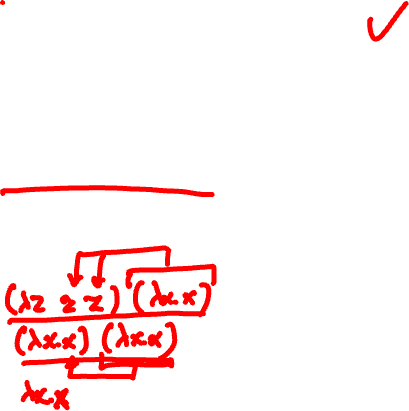 (λz z z) (λx.x)
(λx.x) (λx.x)
λx.x